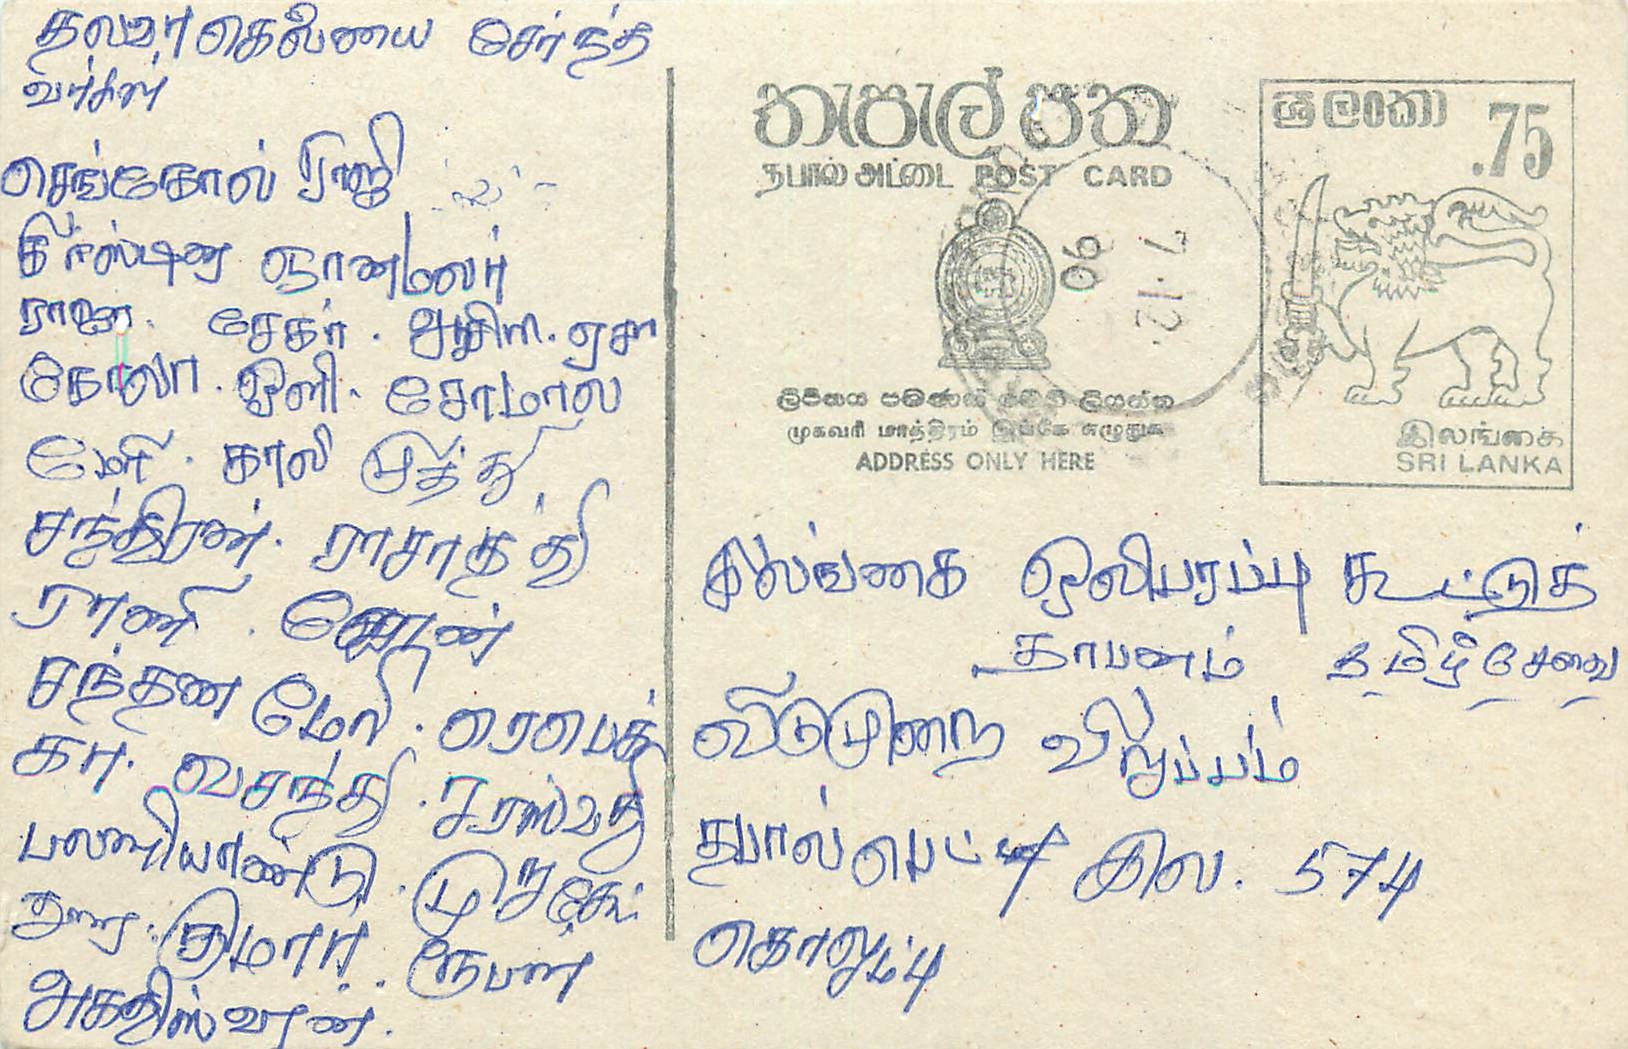 சேர்ந்த
வர்கள்
செங்கோல் ராஜி
ஞானமலர்
சேகர்.
ஒளி.
மேரி. காலி முத்து
சந்திரன். ராசாத்தி
ராணி.
சந்தன மேரி. ரெபெக்
கா. வசந்தி. சரஸ்வதி
பழனியாண்டி. முருகே
துரை. குமார். ரூபன்
තැපැල් පත
தபால் அட்டை POST CARD
ශ්‍රී ලංකා .75
90
7.12
ලිපිනය පමණක් මෙහි ලියන්න
முகவரி மாத்திரம் இங்கே எழுதுக
ADDRESS ONLY HERE
இலங்கை
SRI LANKA
இலங்கை ஒலிபரப்பு கூட்டுத்
தாபனம் தமிழ்சேவை
விடுமுறை விருப்பம்
தபால் பெட்டி இல. 574
கொழும்பு